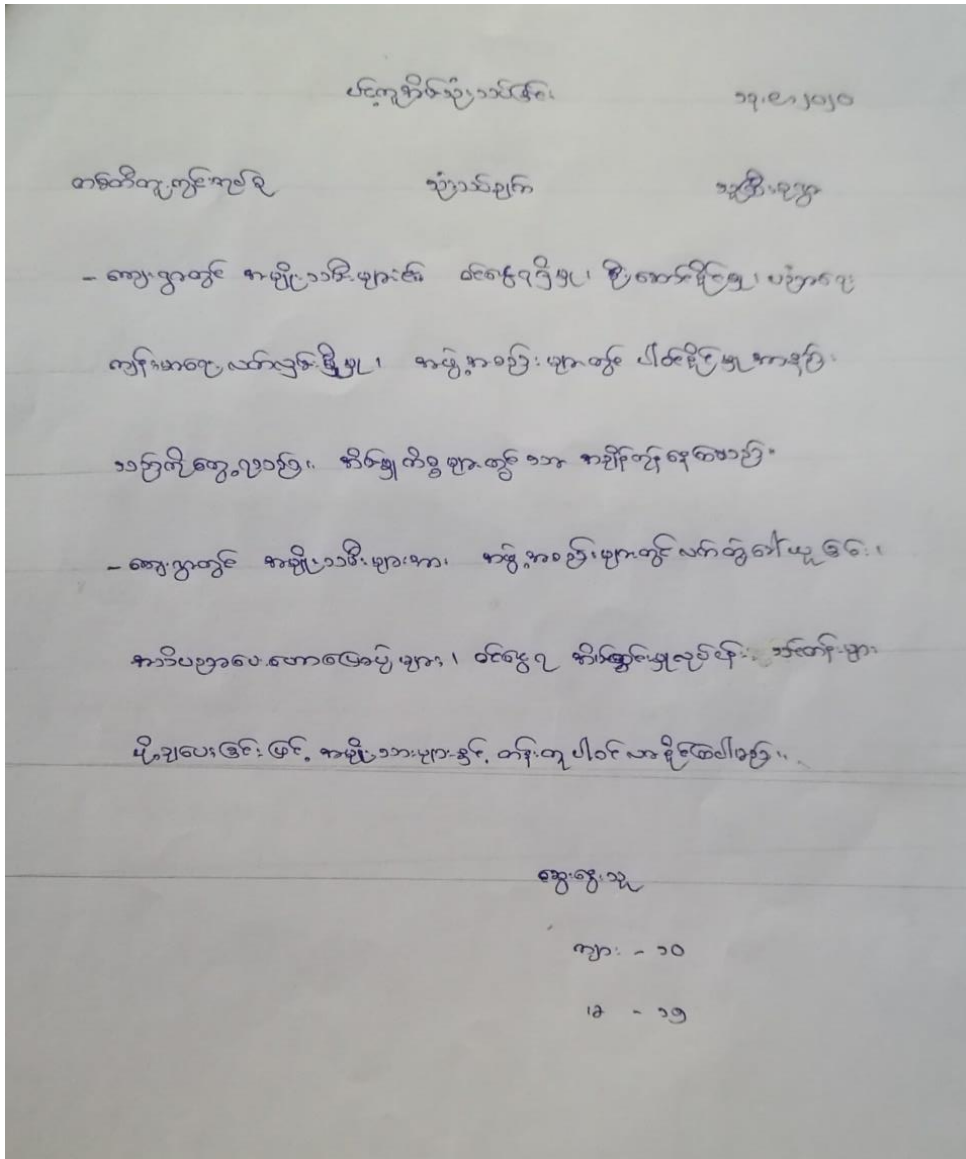 ပင့်ကူအိမ်သုံးသပ်ခြင်း ၁၃.၈.၂၀၂၀
တစ်တီတူးကျွင်းအုပ်စု သုံးသပ်ချက် သူကြီးရွာ
- ကျေးရွာတွင် အမျိုးသမီးများ၏ ဝင်ငွေရရှိမှု၊ ဦးဆောင်နိုင်မှု၊ ပညာရေး
ကျန်းမာရေး လက်လှမ်းမှီမှု၊ အဖွဲ့အစည်းများတွင် ပါဝင်နိုင်မှုအားနည်း
သည်ကိုတွေ့ရသည်။ အိမ်မှုကိစ္စများတွင်သာ အချိန်ကုန်နေကြသည်။
- ကျေးရွာတွင် အမျိုးသမီးများအား အဖွဲ့အစည်းများတွင်လက်တွဲခေါ်ယူခြင်း၊
အသိပညာပေးဟောပြောပွဲများ၊ ဝင်ငွေရ အိမ်တွင်းမှုလုပ်ငန်း သင်တန်းများ
ပို့ချပေးခြင်းဖြင့် အမျိုးသားများနှင့် တန်းတူပါဝင်လာနိုင်ကြပါမည်။
ဆွေးနွေးသူ
ကျား - ၁၀
မ - ၁၅